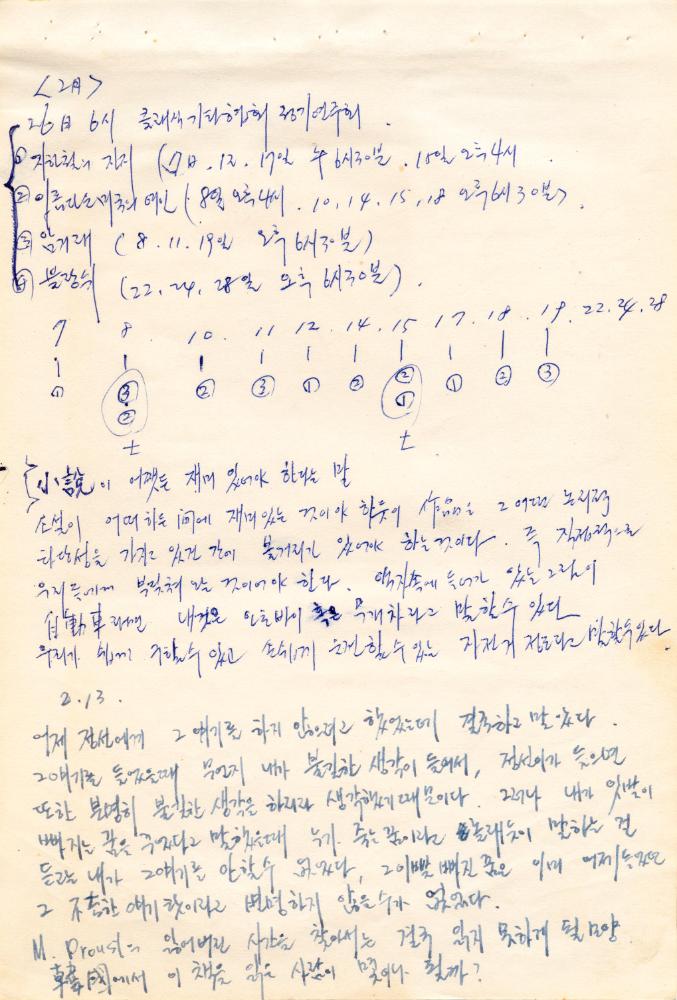 <2月>
26日 6시 클래식기타협회 정기연주회.
① 자전철의 지지 (7日. 12. 17일 午 6시30분. 15일 오후4시
② 아름다운 미국의 여인 (8일 오후4시. 10. 14. 15, 18 오후6시30분).
③ 암거래 (8. 11. 19일 오후 6시30분)
④ (22, 24, 28일 오후 6시30분).
7 8 10. 11 12. 14. 15 17. 18. 19. 22. 24. 28
① ③ ② ③ ① ② ② ① ② ③
② ①
土 土
小說이 어쨌든 재미 있어야 한다는 말
소설이 어떠하든 間에 재미있는 것이야 하듯이 作品은 그 어떤 논리적
타당성을 가지고 있건 간에 볼거리가 있어야 하는것이다. 즉 직접적으로
우리들에게 부딪쳐 오는 것이어야 한다. 액자속에 들어가 있는 그림이
自動車라면 내것은 오토바이 혹은 라고 말할수 있다
우리가 쉽게 취할수 있고 손쉽게 운전할수 있는 자전거 정도라고 말할수있다.
2. 13.
어제 정선에게 그 얘기를 하지 않으려고 했었는데 결국하고 말았다.
그얘기를 들었을때 무언지 내가 불길한 생각이 들어서, 정선이가 들으면
또한 분명히 불길한 생각을 하리라 생각했기때문이다. 그러나 내가 잇빨이
빠지는 꿈을 꾸었다고 말했을때 누가 죽는 꿈이라고 놀래듯이 말하는 걸
듣고는 내가 그얘기를 안할수 없었다, 그 이빨 빠진 꿈은 이미 어제 들었던
그 不吉한 얘기 탓이라고 변명하지 않을수가 없었다.
M. Proust의 잃어버린 시간을 찾아서는 결국 읽지 못하게 될모양.
韓國에서 이 책을 읽은 사람이 몇이나 될까?